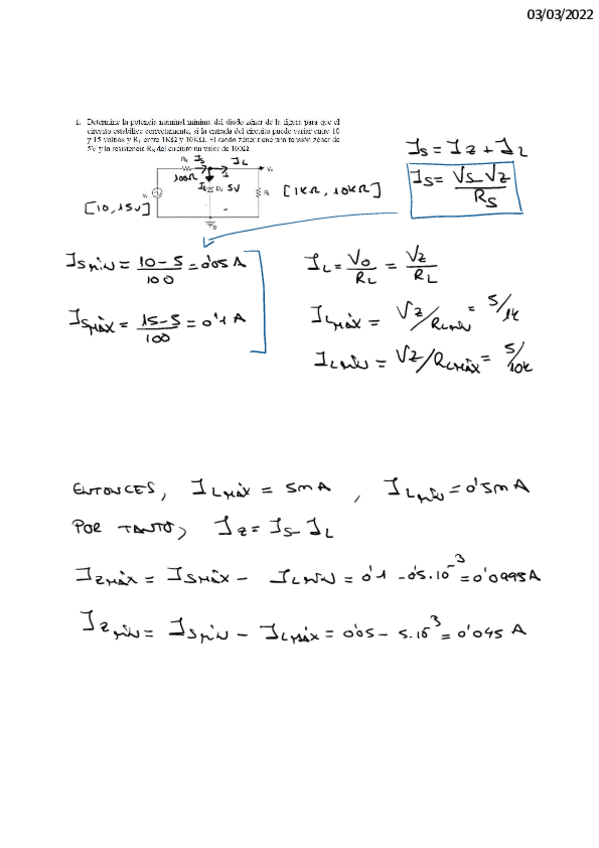 03/03/2022
1. Determine la potencia nominal mínima del diodo zéner de la figura para que el
circuito estabilice correctamente, si la entrada del circuito puede variar entre 10
y 15 voltios y RL entre 1KΩ y 10KΩ. El diodo zéner tiene una tensión zéner de
5V y la resistencia RS del circuito un valor de 100Ω
IS = IZ + IL
RS IS IL
100Ω
IZ 5V RL [1KΩ, 10KΩ]
[10, 15V]
IS = VS - VZ / RS
ISMIN = 10-5 / 100 = 0'05 A
IL = V0 / RL = VZ / RL
ISMÁX = 15-5 / 100 = 0'1 A
ILMÁX = VZ/RLMIN = 5/1K
ILMIN = VZ/RLMÁX = 5/10K
ENTONCES, ILMÁX = 5mA , ILMIN = 0'5mA
POR TANTO, IZ = IS - IL
IZMÁX = ISMÁX - ILMIN = 0'1 - 0'5·10⁻³ = 0'0995A
IZMIN = ISMIN - ILMÁX = 0'05 - 5·10⁻³ = 0'045 A